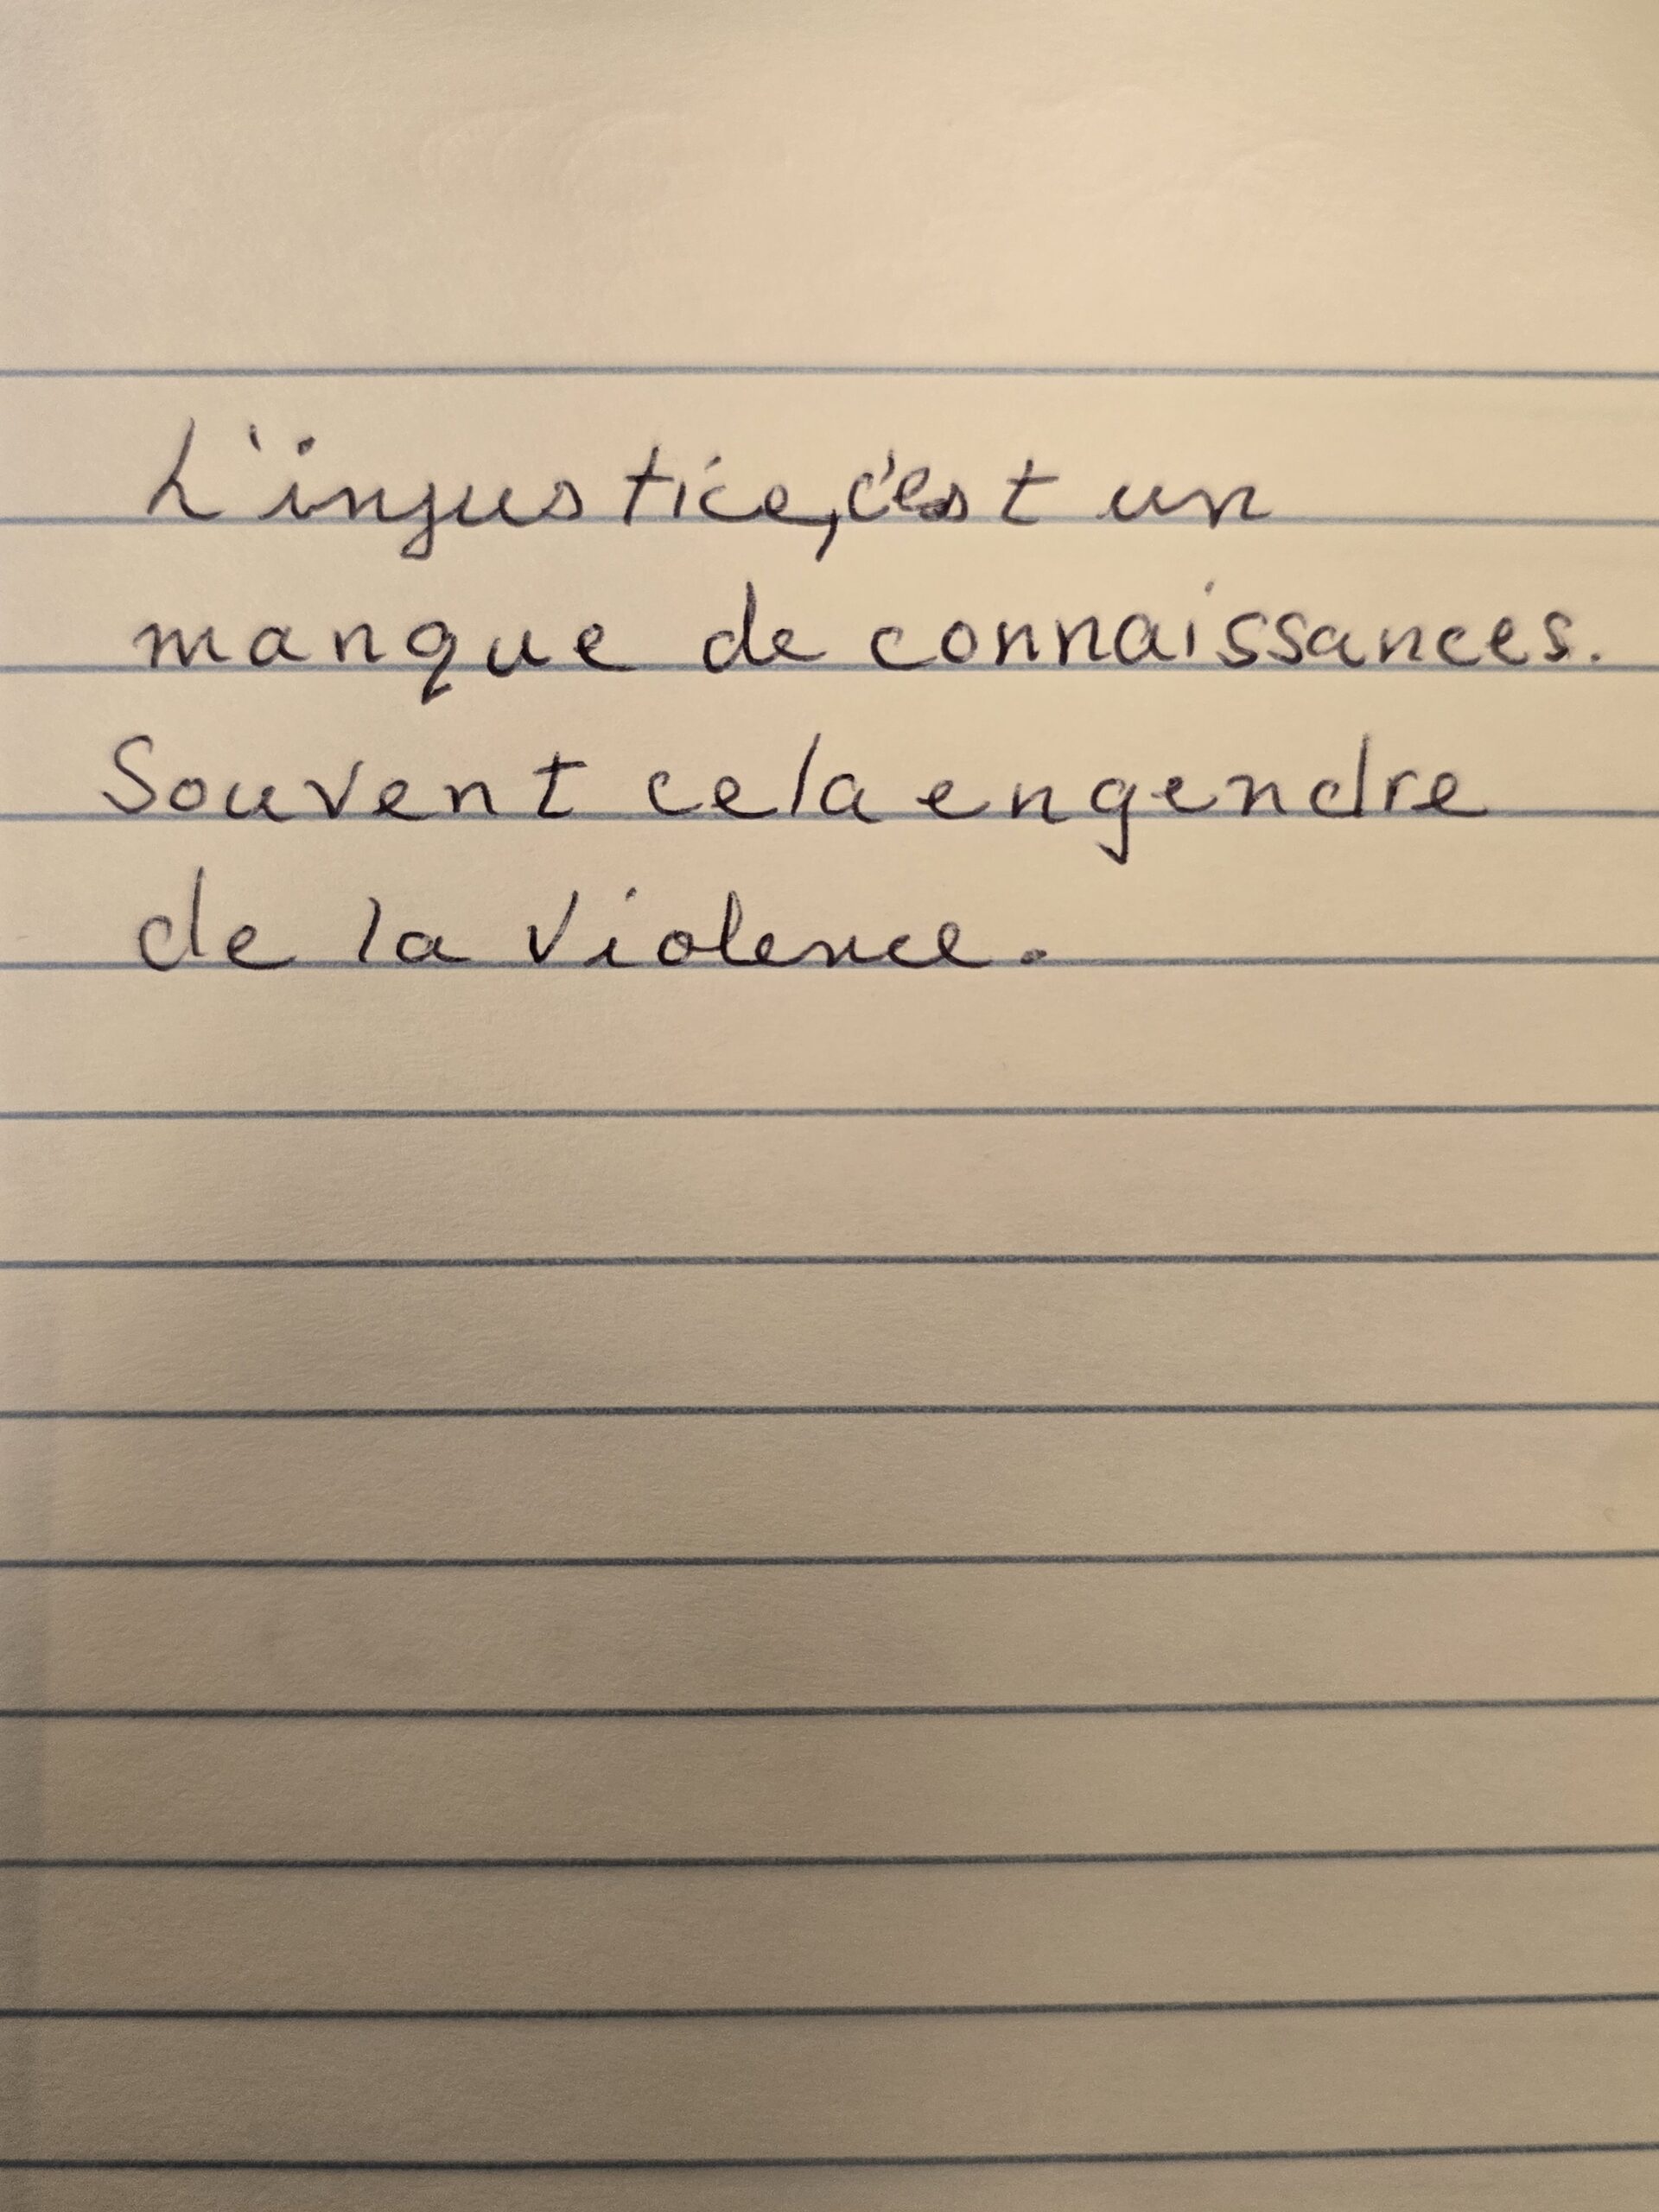 L'injustice, c'est un
manque de connaissances.
Souvent cela engendre
de la violence.